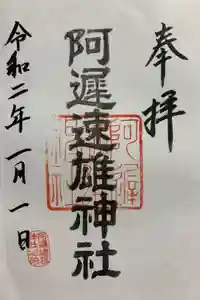 奉拝
阿遅速雄神社
令和二年一月一日